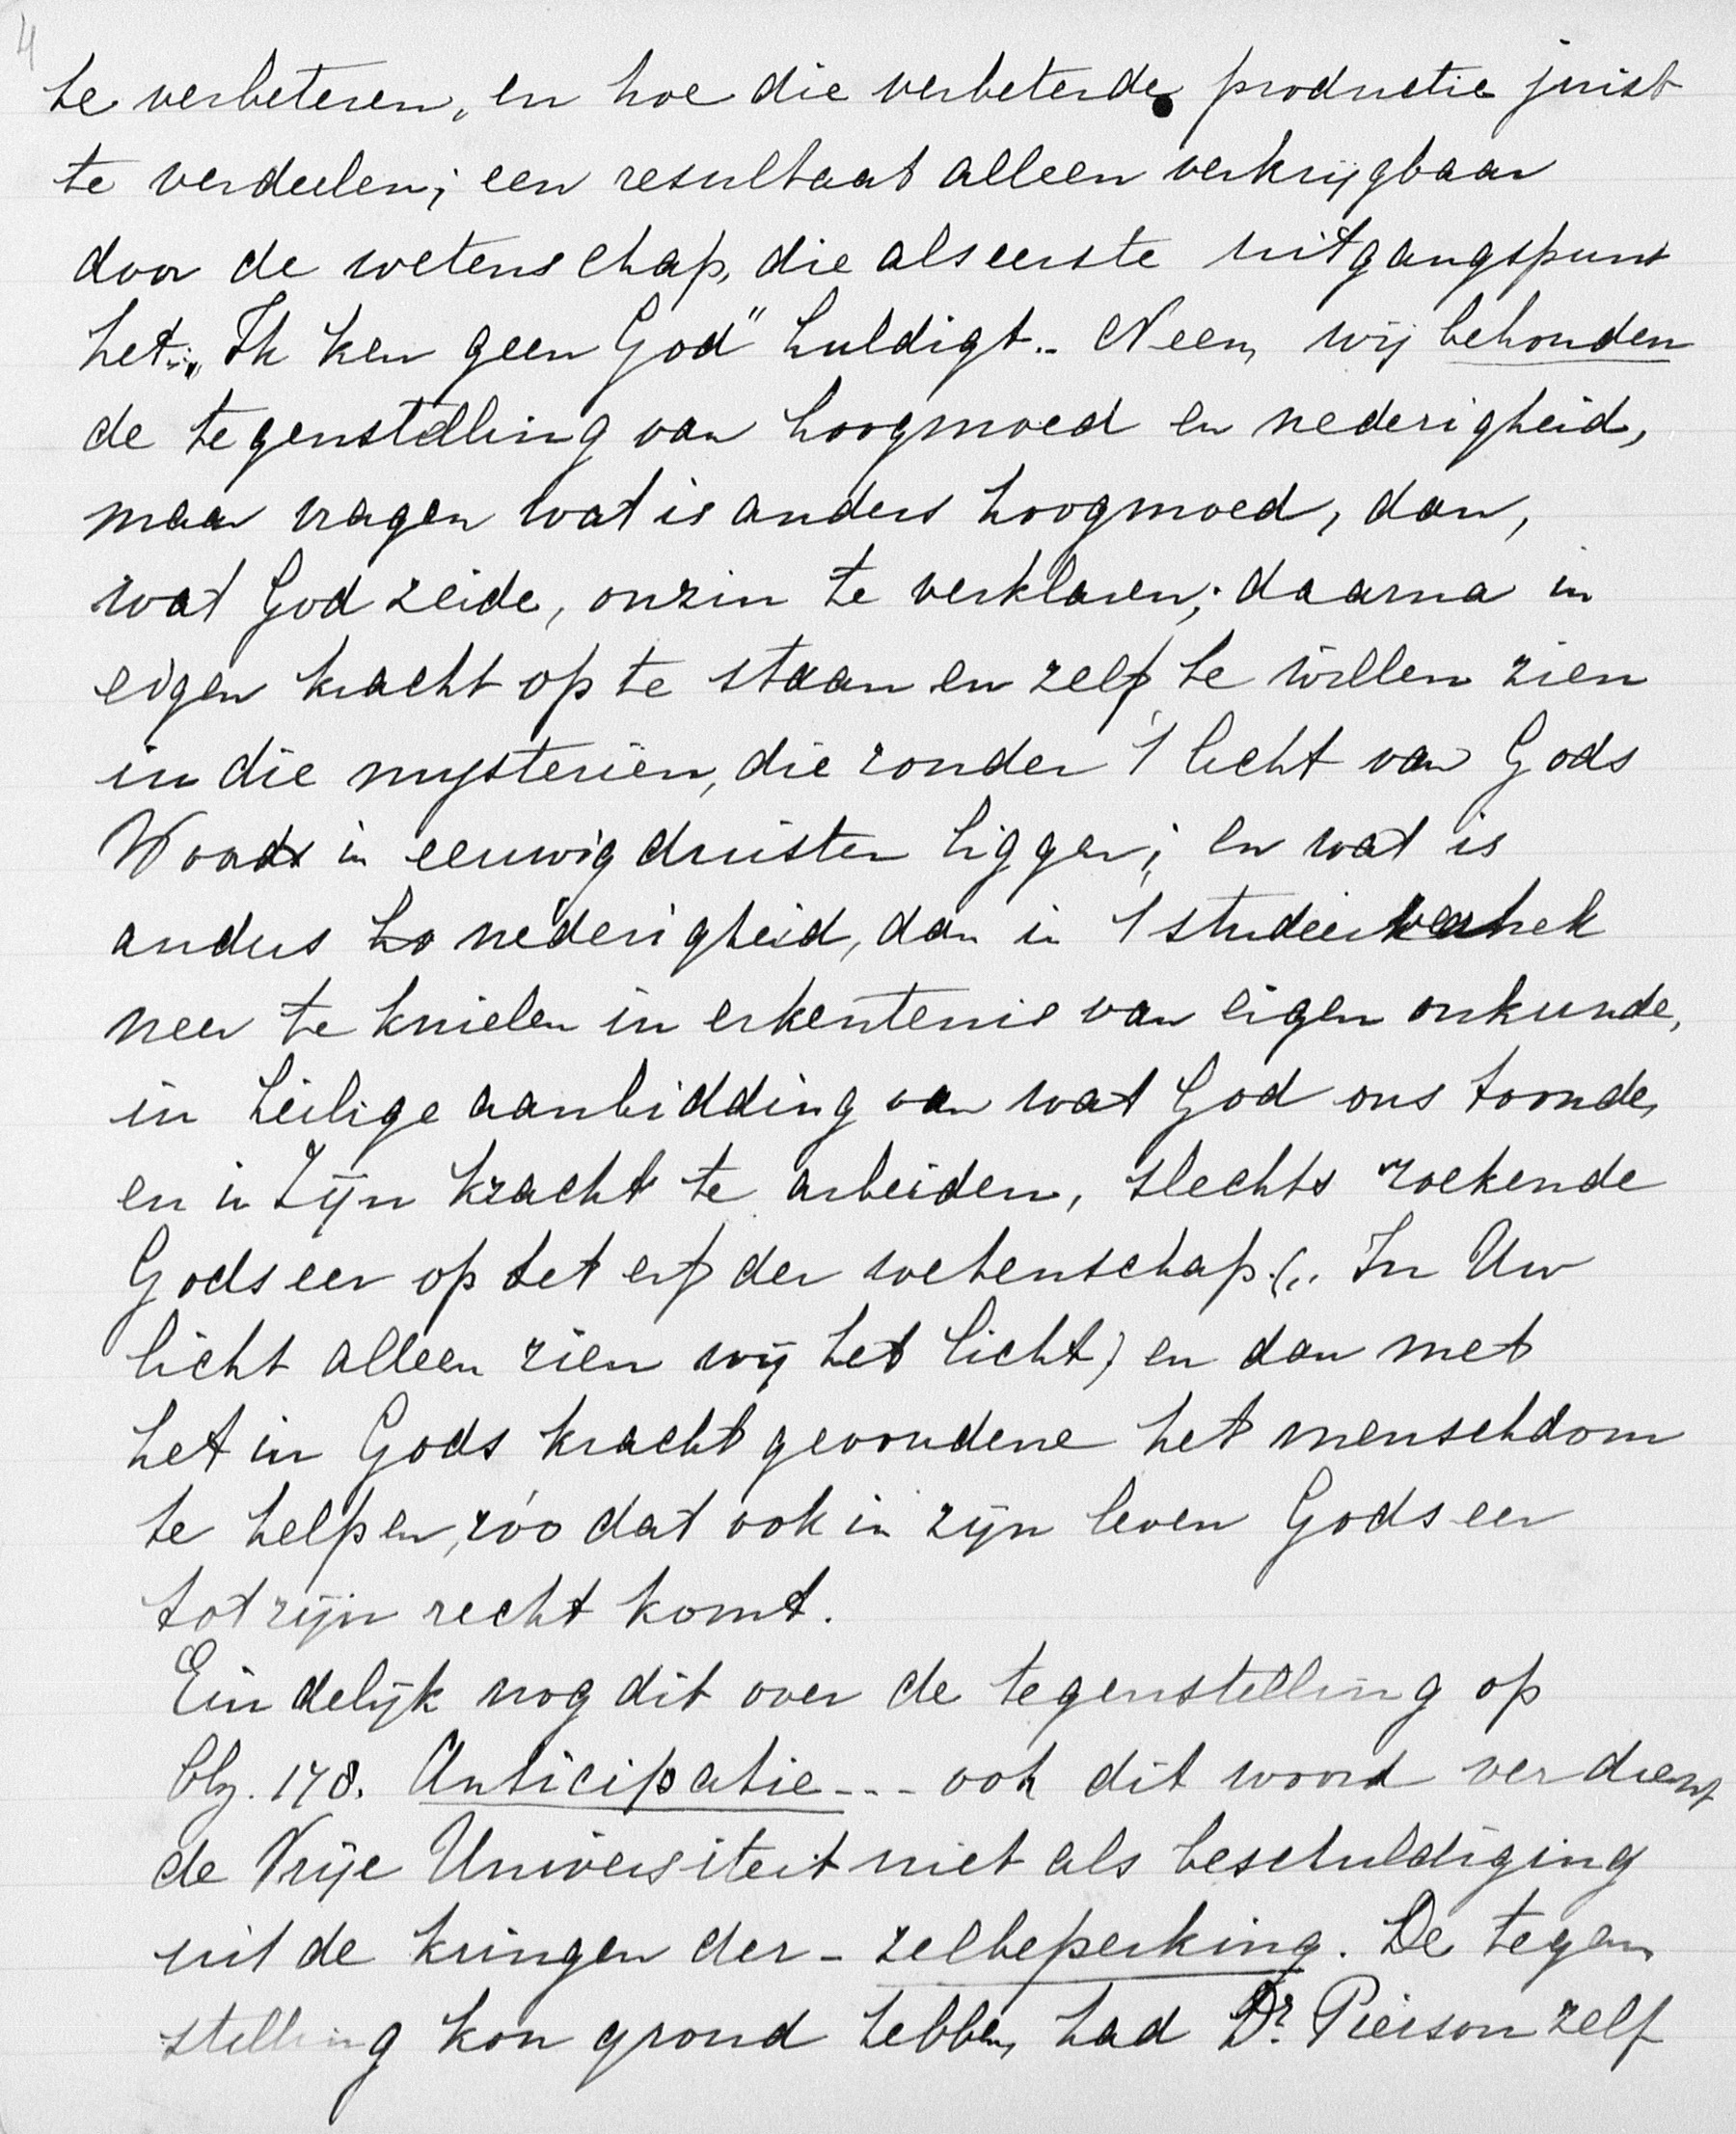 4
te verbeteren, en hoe die verbeterde productie juist
te verdeelen; een resultaat alleen verkrijgbaar
door de wetenschap, die als eerste uitgangspunt
het: „Ik ken geen God" huldigt.. Neen, wij behouden
de tegenstelling van hoogmoed en nederigheid,
maar vragen wat is anders hoogmoed, dan,
wat God zeide, onzin te verklaren; daarna in
eigen kracht op te staan en zelf te willen zien
in die mysteriën, die zonder 't licht van Gods
Woord in eeuwig duister liggen; en wat is
anders ho nederigheid, dan in 't studeervertrek
neer te knielen in erkentenis van eigen onkunde,
in heilige aanbidding van wat God ons toonde,
en in Zijn kracht te arbeiden, slechts zoekende
Gods eer op het erf der wetenschap. („In Uw
licht alleen zien wij het licht) en dan met
het in Gods kracht gevondene het menschdom
te helpen, zóo dat ook in zijn leven Gods eer
tot zijn recht komt.
Eindelijk nog dit over de tegenstelling op
blz. 178. Anticipatie--- ook dit woord verdient
de Vrije Universiteit niet als beschuldiging
uit de kringen der - zelbeperking. De tegen
stelling kon grond hebben, had Dr. Pierson zelf